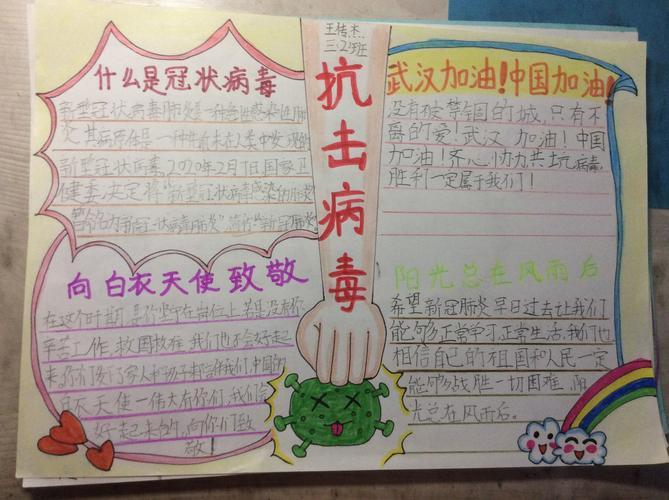 王传杰
三.2班
抗击病毒
什么是冠状病毒
新型冠状病毒肺炎是一种急性感染性肺
炎,其病原体是一种先前未在人类中发现的
新型冠状病毒,2020年2月7日国家卫
健委决定将“新型冠状病毒感染的肺炎”
暂命名为“新冠状病毒肺炎”简称“新冠肺炎”
武汉加油!中国加油!
没有被禁锢的城,只有不
离的爱!武汉加油!中国
加油!齐心协力共抗病毒,
胜利一定属于我们!
向白衣天使致敬
在这个时期,是你坚守在岗位上,若是没有你
辛苦工作,救国救难,我们也不会好起
来,你们
白衣天使一伟大有你们,我们会
好起来的,向你们致
敬!
阳光总在风雨后
希望新冠肺炎早日过去让我们
能够正常学习,正常生活,我们也
相信自己的祖国和人民一定
能够战胜一切困难,阳
光总在风雨后。